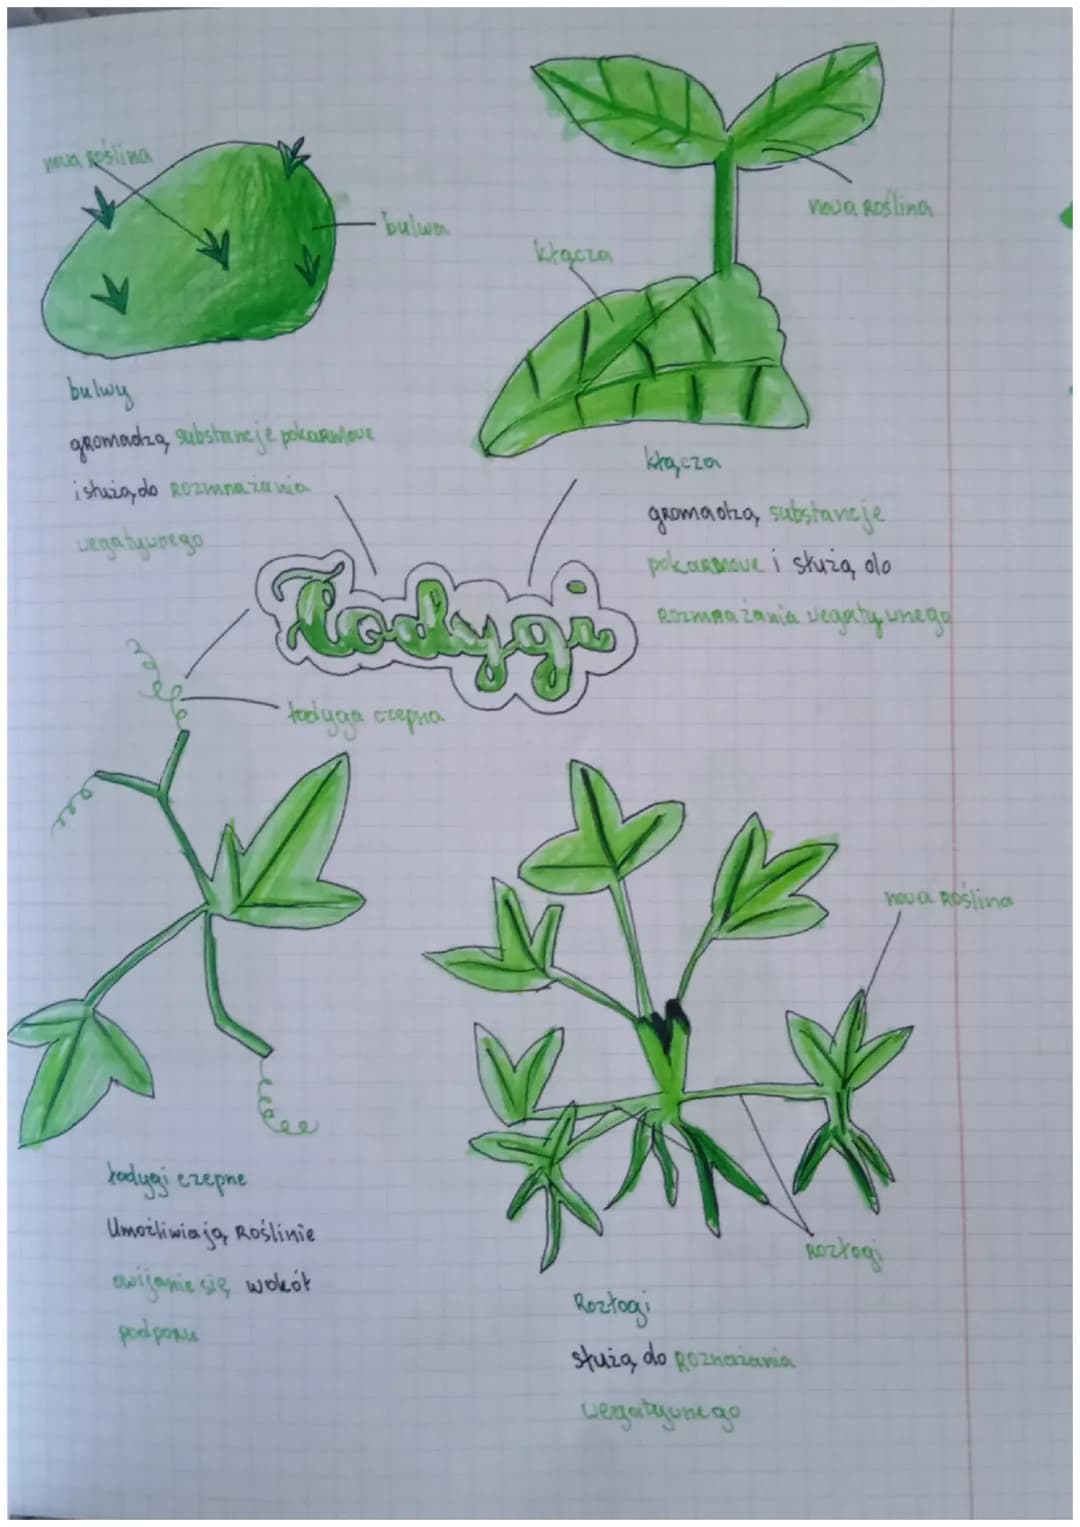 nowa Roślina
bulwa
bulwy
gromadzą substancje pokarmowe
i służą do Rozmnażania
wegatywnego
nowa Roślina
kłącza
kłącza
gromadzą substancje
pokarmowe i służą do
Rozmnażania wegatywnego
Łodygi
łodyga czepna
łodygi czepne
Umożliwiają Roślinie
owijanie się wokół
podpory
nowa Roślina
Rozłogi
Rozłogi
służą do Roznażania
wegatywnego